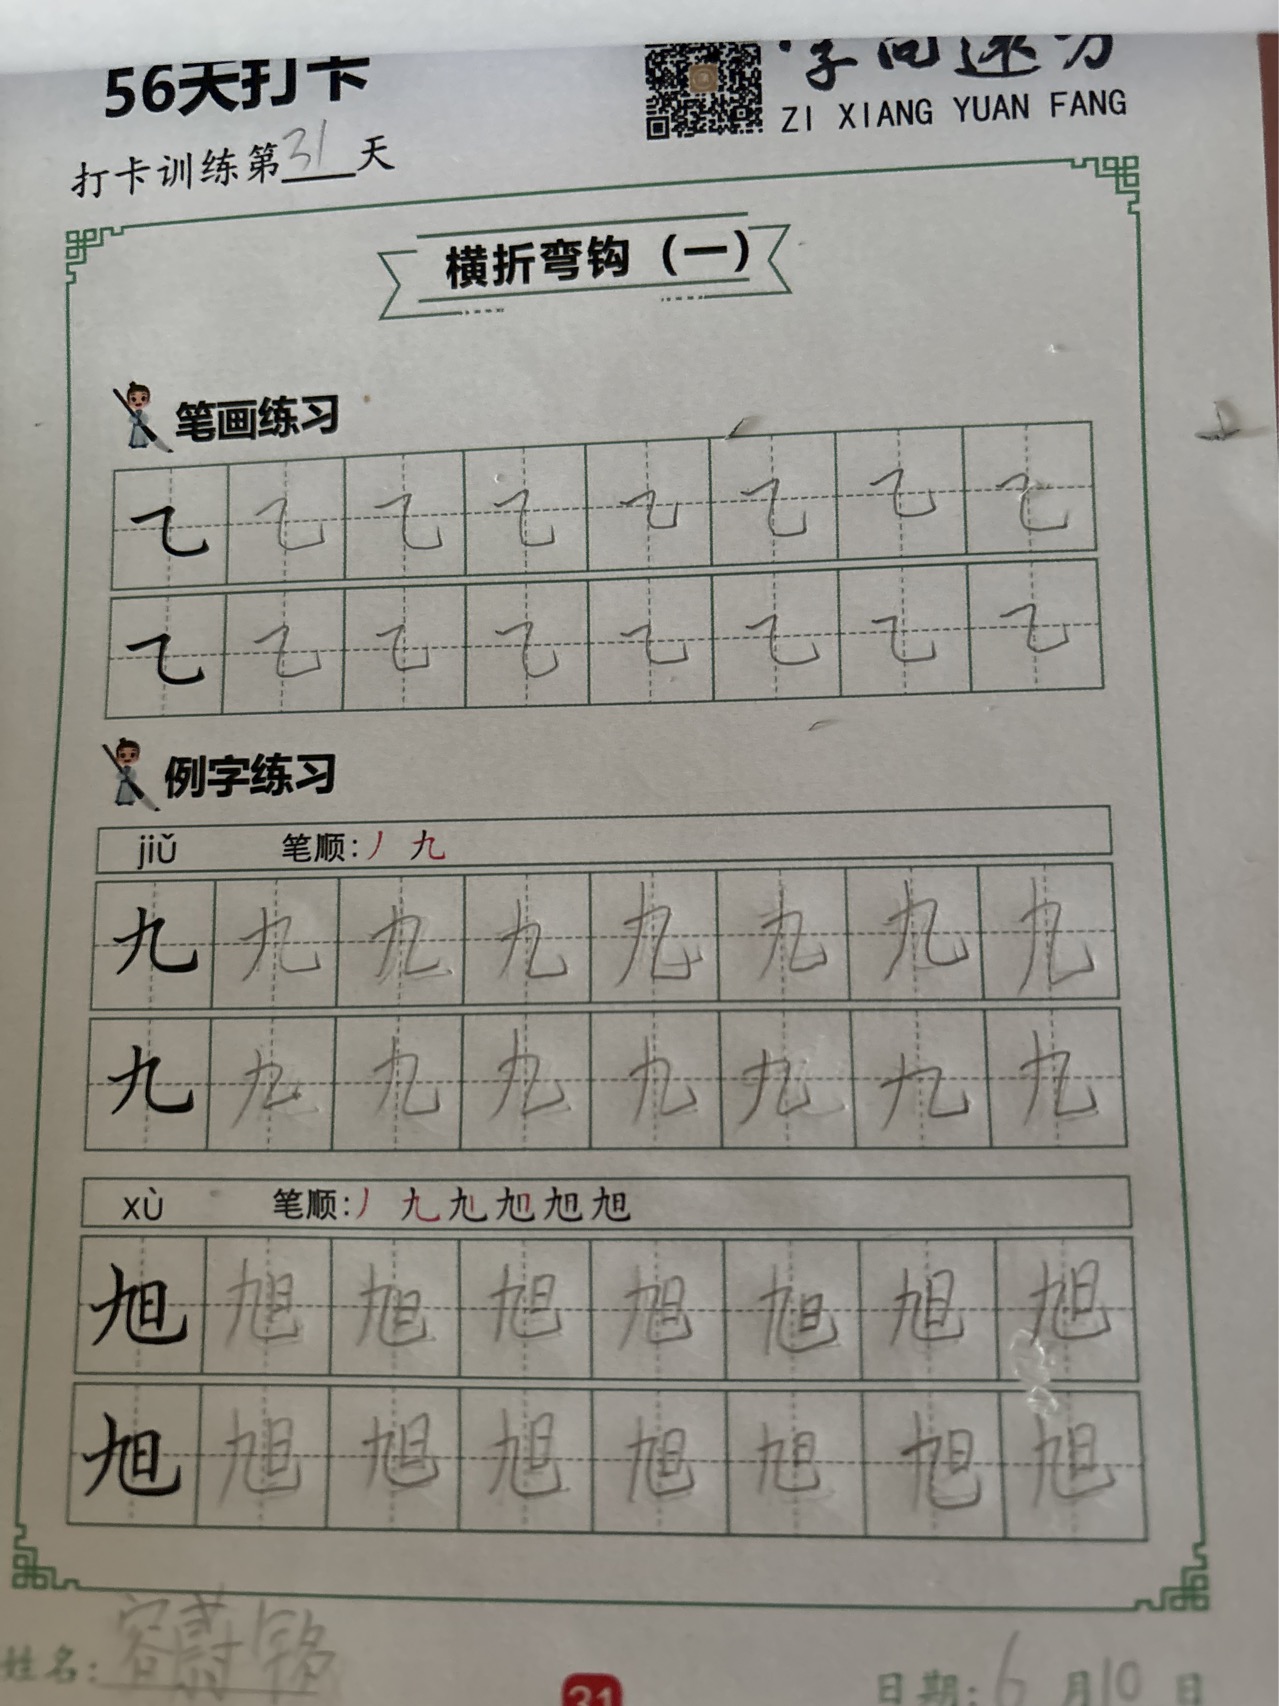 56天打卡
字向远方
ZI XIANG YUAN FANG
打卡训练第31天
横折弯钩（一）
笔画练习
乙 乙 乙 乙 乙 乙 乙 乙
乙 乙 乙 乙 乙 乙 乙 乙
例字练习
jiǔ 笔顺：丿 九
九 九 九 九 九 九 九 九
九 九 九 九 九 九 九 九
xù 笔顺：丿 九 旭 旭 旭 旭
旭 旭 旭 旭 旭 旭 旭 旭
旭 旭 旭 旭 旭 旭 旭 旭
姓名：容尉铭
31
日期：6月10日